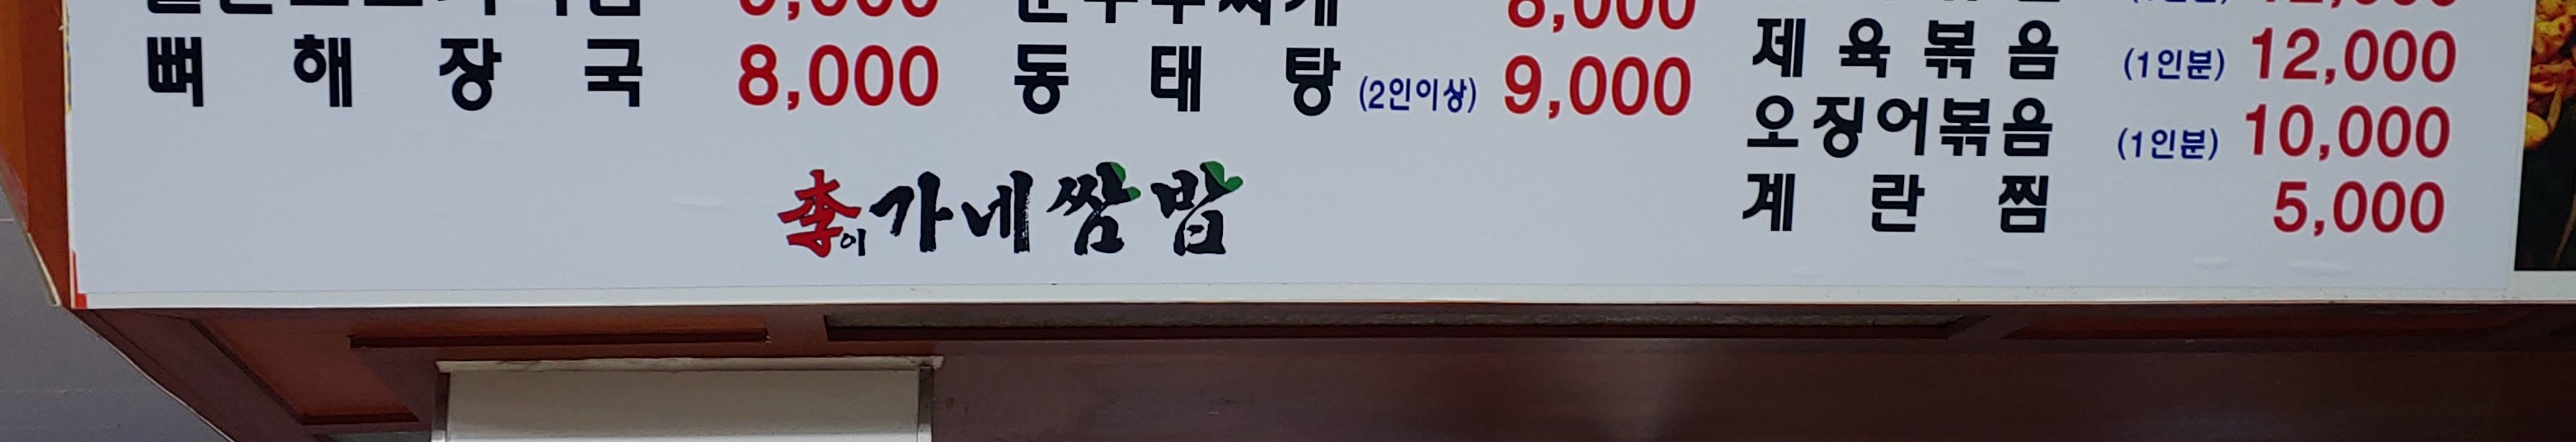 뼈해장국 8,000
순두부찌개
동태탕 (2인이상) 9,000
제육볶음 (1인분) 12,000
오징어볶음 (1인분) 10,000
계란찜 5,000
李이가네쌈밥